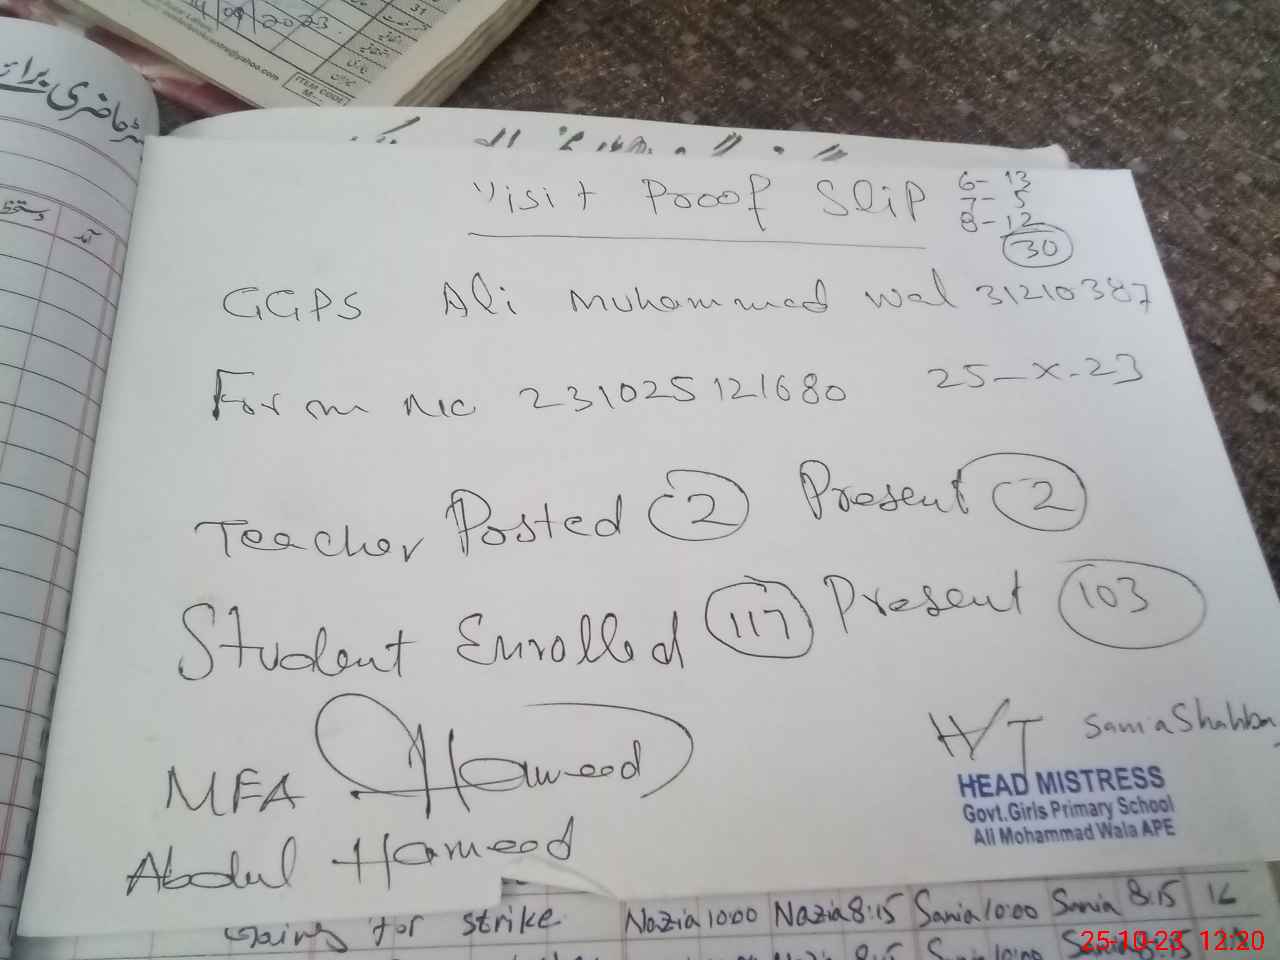 /09/2023
@yahoo.com
ITEM CODE
31
حاضری برائے
دستخط
آمد
Visit Proof Slip
6- 13
7- 5
8- 12
30
GGPS Ali Muhammad Wal 31210387
Form no 231025121680 25-X-23
Teacher Posted 2 Present 2
Student Enrolled 117 Present 103
MEA Hameed
Abdul Hameed
H/T Sania Shahba
HEAD MISTRESS
Govt.Girls Primary School
Ali Mohammad Wala APE
for strike Nazia 10:00 Nazia 8:15 Sania 10:00 Sania 8:15
25-10-23 12:20